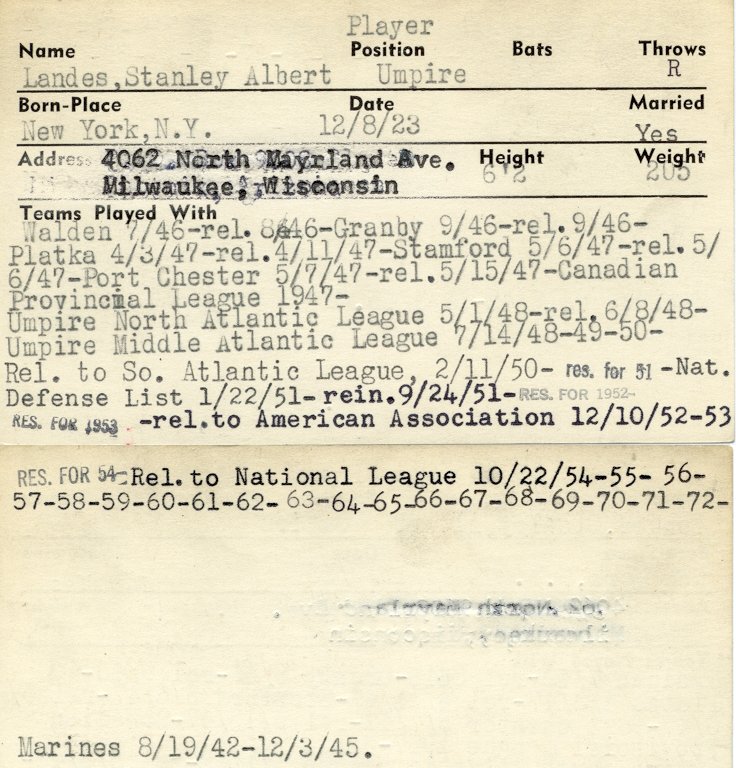 Player
Name Position Bats Throws
Landes,Stanley Albert Umpire R
Born-Place Date Married
New York,N.Y. 12/8/23 Yes
Address 4062 North Mayrland Ave. Height Weight
Milwaukee, Wisconsin 6'2 205
Teams Played With
Walden 7/46-rel. 8/46-Granby 9/46-rel.9/46-
Platka 4/3/47-rel.4/11/47-Stamford 5/6/47-rel.5/
6/47-Port Chester 5/7/47-rel.5/15/47-Canadian
Provincial League 1947-
Umpire North Atlantic League 5/1/48-rel.6/8/48-
Umpire Middle Atlantic League 7/14/48-49-50-
Rel. to So. Atlantic League, 2/11/50- res. for 51 -Nat.
Defense List 1/22/51-rein.9/24/51-RES. FOR 1952-
RES. FOR 1953 -rel.to American Association 12/10/52-53
RES. FOR 54-Rel.to National League 10/22/54-55- 56-
57-58-59-60-61-62- 63-64-65-66-67-68-69-70-71-72-
Marines 8/19/42-12/3/45.